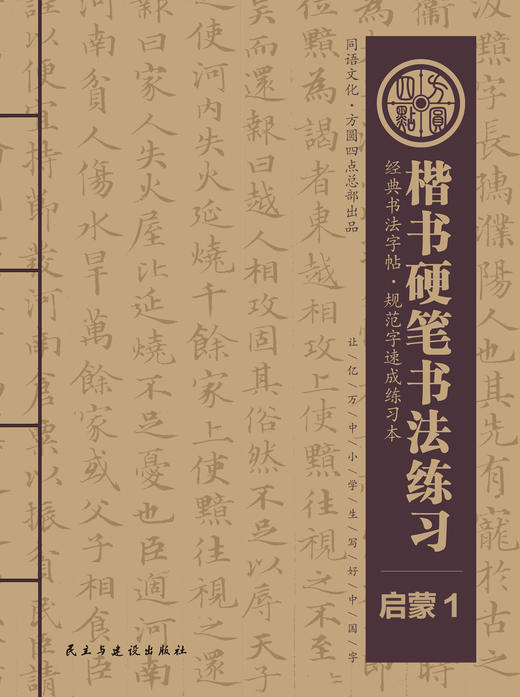 方圓四點
楷书硬笔书法练习
经典书法字帖·规范字速成练习本
启蒙1
同语文化·方圆四点总部出品
让/亿/万/中/小/学/生/写/好/中/国/字
民主与建设出版社
汲黯字長孺濮陽人也其先有寵於古之
位黯為謁者東越相攻上使黯往視之不至
吳而還報曰越人相攻固其俗然不足以辱天子
使河内失火延燒千餘家上使黯往視之還
報曰家人失火屋比延燒不足憂也臣過河南
河南貧人傷水旱萬餘家或父子相食臣
以便宜持節發河南倉粟以振貧民臣請